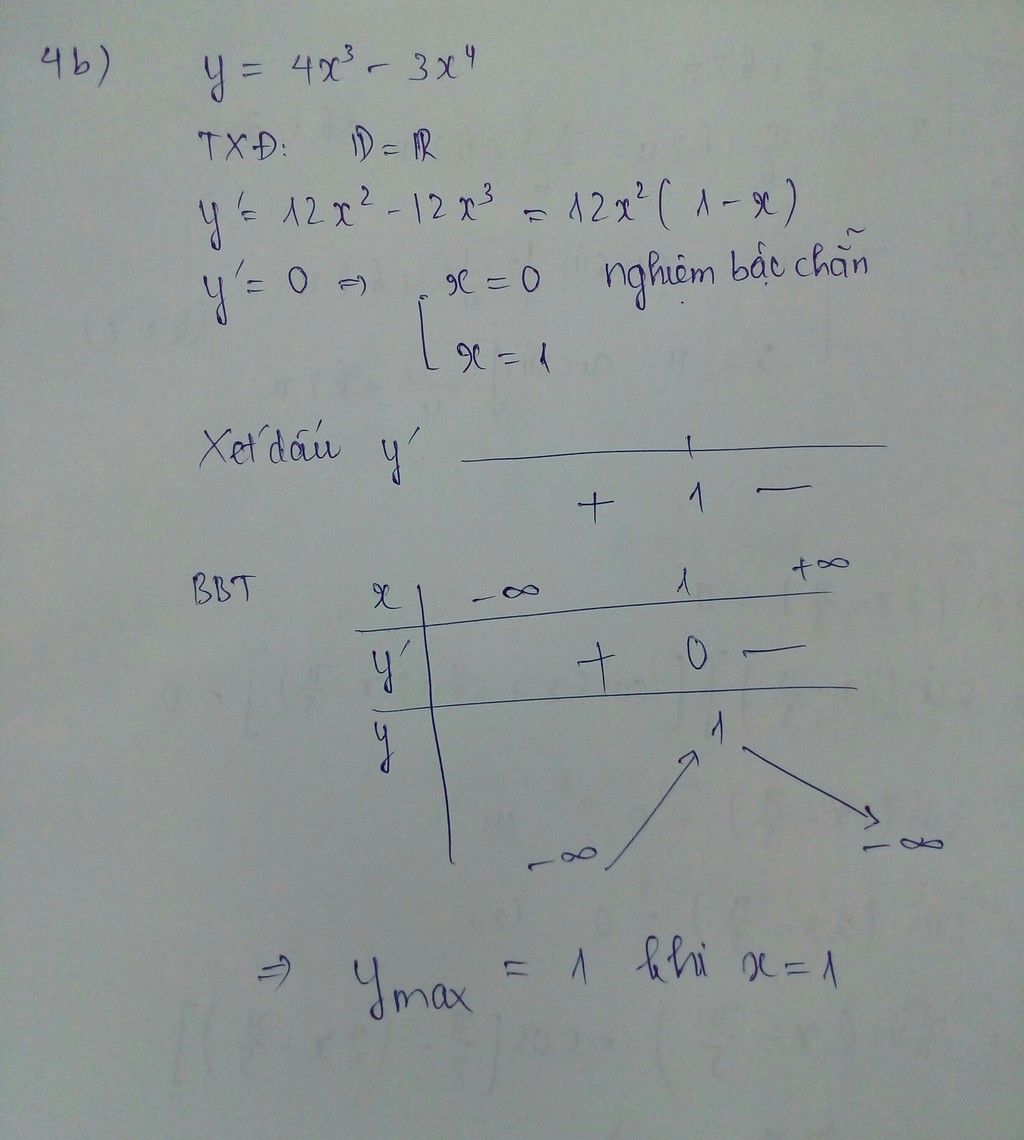 4b) y = 4x³ - 3x⁴
TXĐ: D = ℝ
y' = 12x² - 12x³ = 12x² ( 1 - x )
y' = 0 ⇒ [ x = 0 nghiệm bậc chẵn
x = 1
Xét dấu y'
+ 1 -
BBT x -∞ 1 +∞
y' + 0 -
y 1
-∞ -∞
⇒ y max = 1 khi x = 1